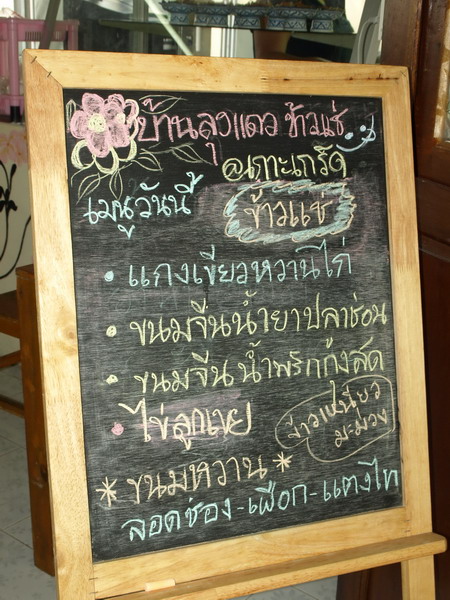 บ้านลุงแดว ข้าวแช่
@เกาะเกร็ด
เมนูวันนี้
ข้าวแช่
• แกงเขียวหวานไก่
• ขนมจีนน้ำยาปลาช่อน
• ขนมจีนน้ำพริกกุ้งสด
• ไข่ลูกเขย
ข้าวเหนียว
มะม่วง
* ขนมหวาน *
ลอดช่อง-เผือก-แตงไท